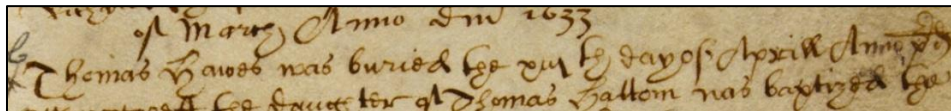 of March Anno dni 1633
Thomas Hawes was buried the xiij th day of Aprill Anno pd
the daughter of Thomas Hattom was baptized the